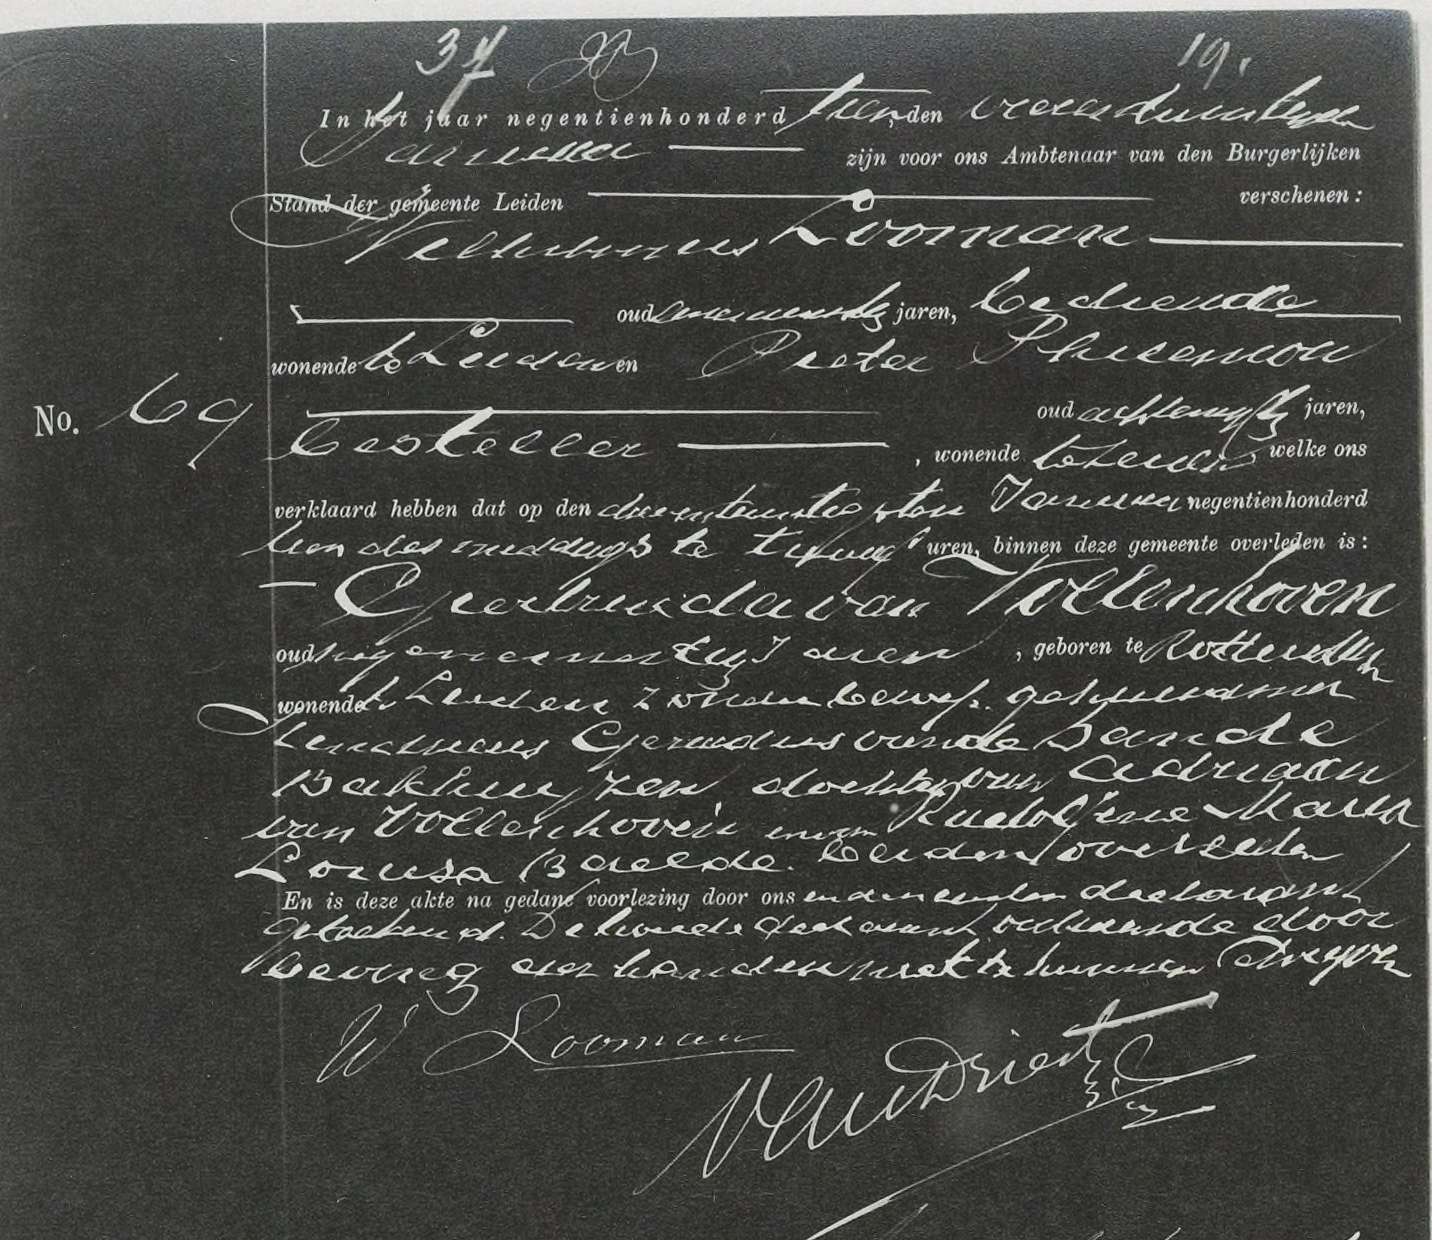 37 19.
In het jaar negentienhonderd tien, den vierentwintigsten
Januari zijn voor ons Ambtenaar van den Burgerlijken
Stand der gemeente Leiden verschenen:
Wilhelmus Looman
oud jaren, bediende
wonende te Leiden en Pieter Philemon
No. 69 oud achtenvijftig jaren,
besteller, wonende te Leiden welke ons
verklaard hebben dat op den drieentwintigsten Januari negentienhonderd
tien des middags te twaalf uren, binnen deze gemeente overleden is:
Geertruida van Vollenhoven
oud jaren, geboren te Rotterdam
wonende te Leiden zonder beroep, gehuwd met
Hendricus Gerardus van de Sande
Bakhuyzen dochter van Adriaan
van Vollenhoven en van Rudolfine Maria
Louisa Beelde. beiden overleden
En is deze akte na gedane voorlezing door ons en den eersten declarant
geteekend. De tweede declarant verklaarde door
beving der handen niet te kunnen schryven
W Looman
VanDriest